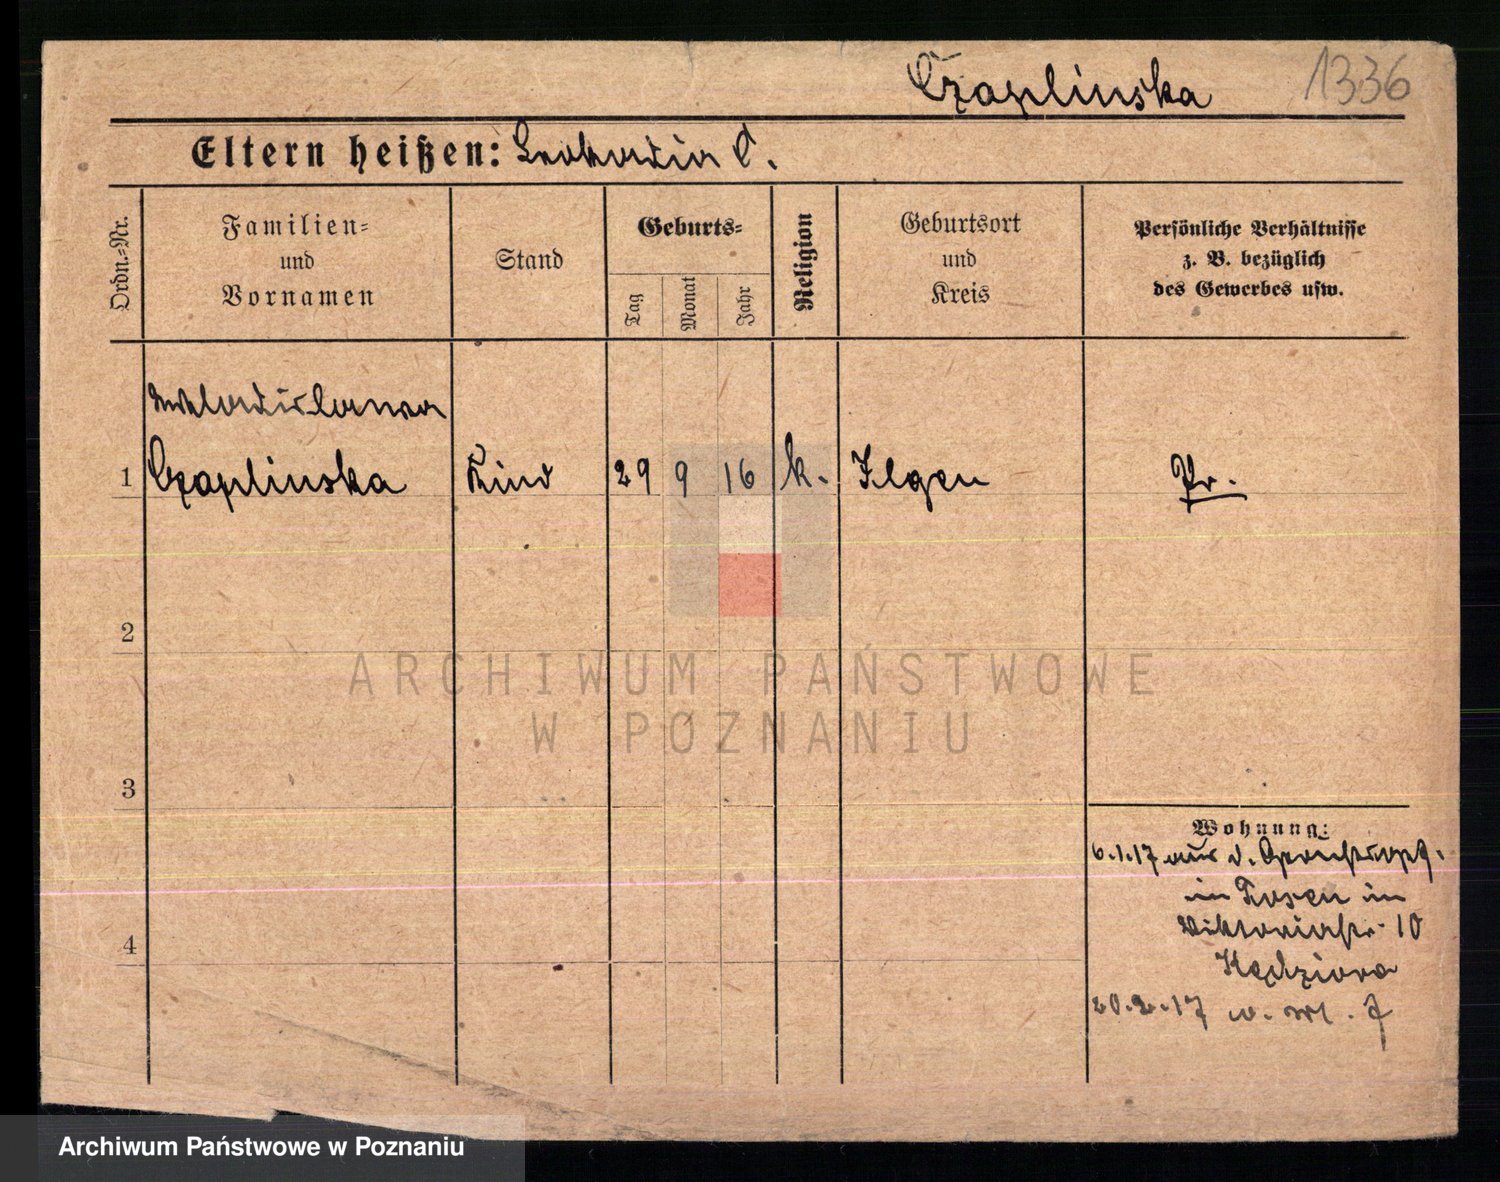 Czaplinska 1336
Eltern heißen: Leokadia C.
Ordn.-Nr.
Familien-
und
Vornamen
Stand
Geburts-
Tag
Monat
Jahr
Religion
Geburtsort
und
Kreis
Persönliche Verhältnisse
z. B. bezüglich
des Gewerbes usw.
Wladislawa
1 Czaplinska Kind 29 9 16 k. Ilgen Pr.
2
3
4
Wohnung:
6.1.17 aus d.
in Posen in
Viktoriastr. 10
Kędziora
20.2.17
ARCHIWUM PAŃSTWOWE
W POZNANIU
Archiwum Państwowe w Poznaniu